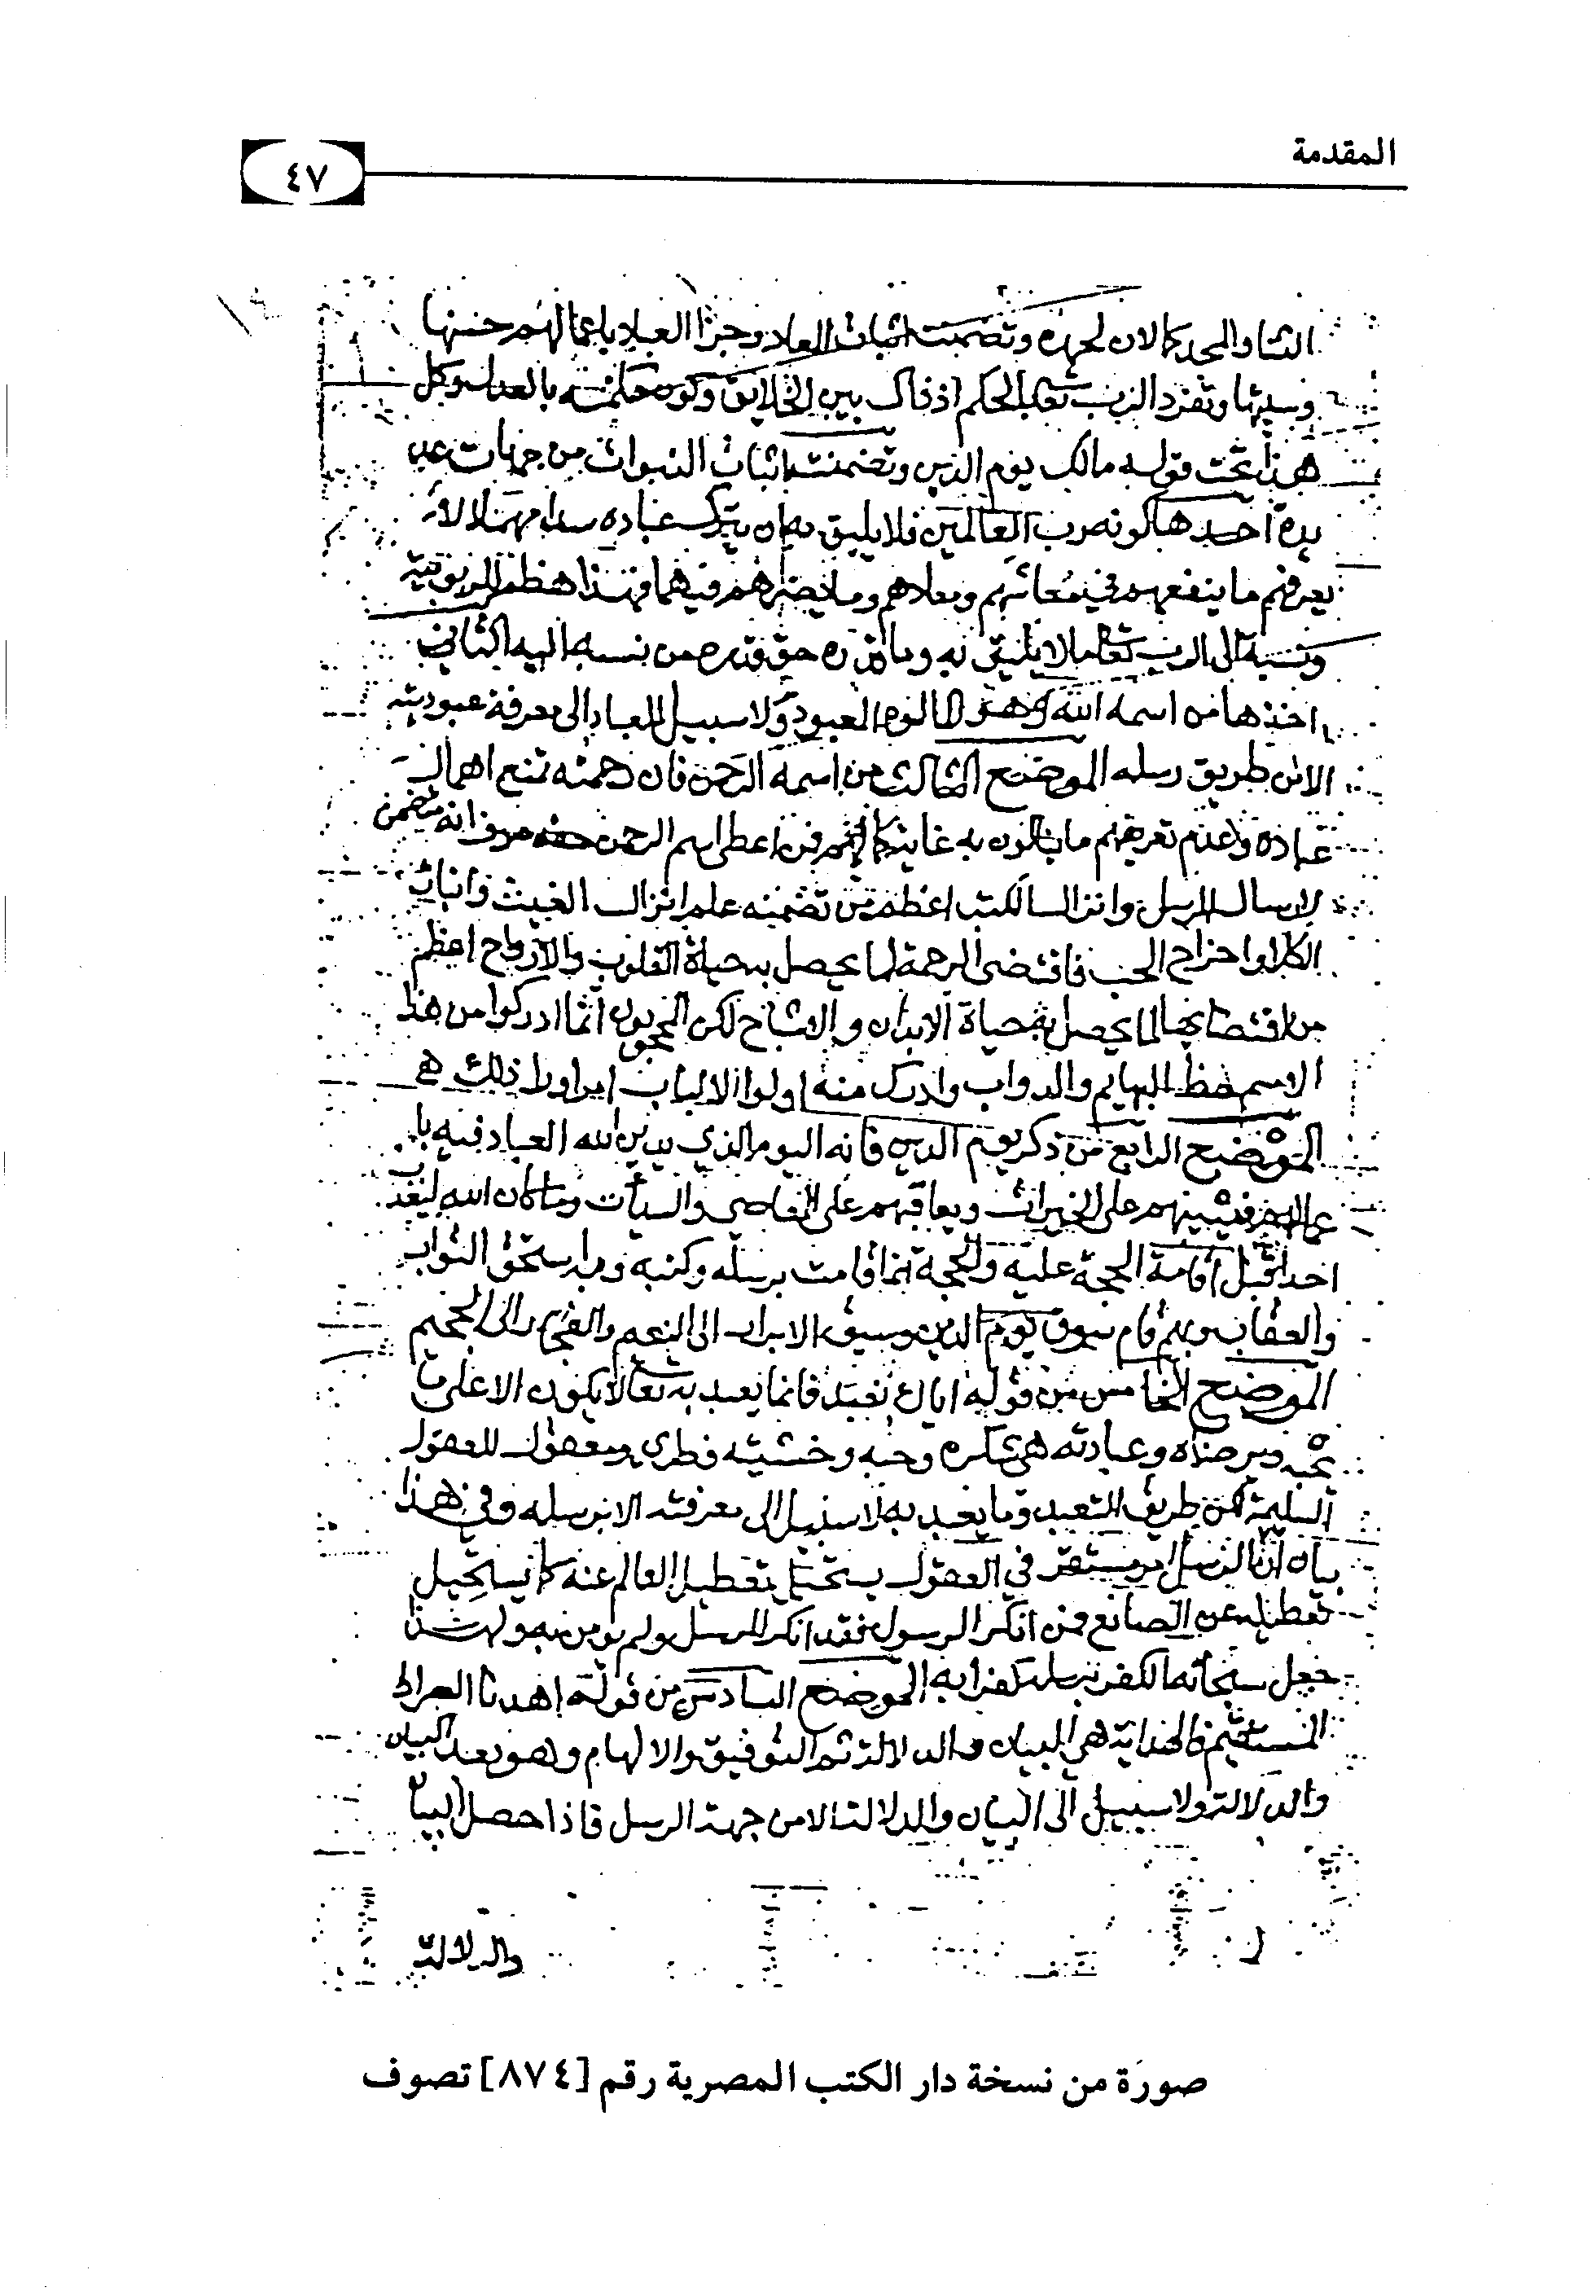 المقدمة
٤٧
الثنا والمجد كمالان لحمده وتضمنت اثبات المعاد وجزا العباد باعمالهم حسنها
وسيئها وتفرد الرب تعالى بالحكم اذ ذاك بين الخلايق وكون حكمه بالعدل وكل
هذا تحت قوله مالك يوم الدين وتضمنت اثبات النبوات من جهات عد
يدة احدها كونه رب العالمين فلا يليق به ان يترك عباده سدا مهملا لا
يعرفهم ما ينفعهم في معاشهم ومعادهم وما يضرهم فيهما فهذا هظم للربوبية
ونسبة الى الرب تعالى ما لا يليق به وما قدره حق قدره من نسبه اليه الثاني
اخذها من اسمه الله وهو المالوه المعبود ولا سبيل للعباد الى معرفة عبوديته
الا من طريق رسله الموضع الثالث من اسمه الرحمن فان رحمته تمنع اهمال
عباده وعدم تعريفهم ما ينالون به غاية كمالهم فمن اعطى اسم الرحمن حقه عرف انه متضمن
لارسال الرسل وانزال الكتب اعظم من تضمنه علم انزال الغيث وانبات
الكلاء واخراج الحب فاقتضى الرحمة لما يحصل به حياة القلوب والارواح اعظم
من اقتضايها لما يحصل به حياة الابدان والاشباح لكن المحجوبون انما ادركوا من هذا
الاسم حظ البهايم والدواب وادرك منه اولوا الالباب امرا ورا ذلك
الموضع الرابع من ذكر يوم الدين فانه اليوم الذي يدين الله العباد فيه با
عمالهم فيثيبهم على الخيرات ويعاقبهم على المعاصي والسيأت وما كان الله ليعذب
احدا قبل اقامة الحجة عليه والحجة انما قامت برسله وكتبه وبهم استحق الثواب
والعقاب وبهم قام سوق يوم الدين وسيق الابرار الى النعيم والفجار الى الجحيم
الموضع الخامس من قوله اياك نعبد فانما يعبد به تعالى لا يكون الا على ما
يحبه ويرضاه وعبادته هي شكره وحبه وخشيته فطري ومعقول للعقول
السليمة لكن طريق التعبد وما يعبد به لا سبيل الى معرفته الا برسله وفي هذا
بيان ان الرسل امر مستقر في العقول يستحيل تعطيل العالم عنه كما يستحيل
تعطيله عن الصانع فمن انكر الرسول فقد انكر المرسل ولم يومن به ولهذا
جعل سبحانه الكفر برسله كفرا به الموضع السادس من قوله اهدنا الصراط
المستقيم فالهداية هي البيان والدلالة ثم التوفيق والالهام وهو بعد البيان
والدلالة ولا سبيل الى البيان والدلالة الا من جهة الرسل فاذا حصل البيا
والدلالة
صورة من نسخة دار الكتب المصرية رقم [٨٧٤] تصوف